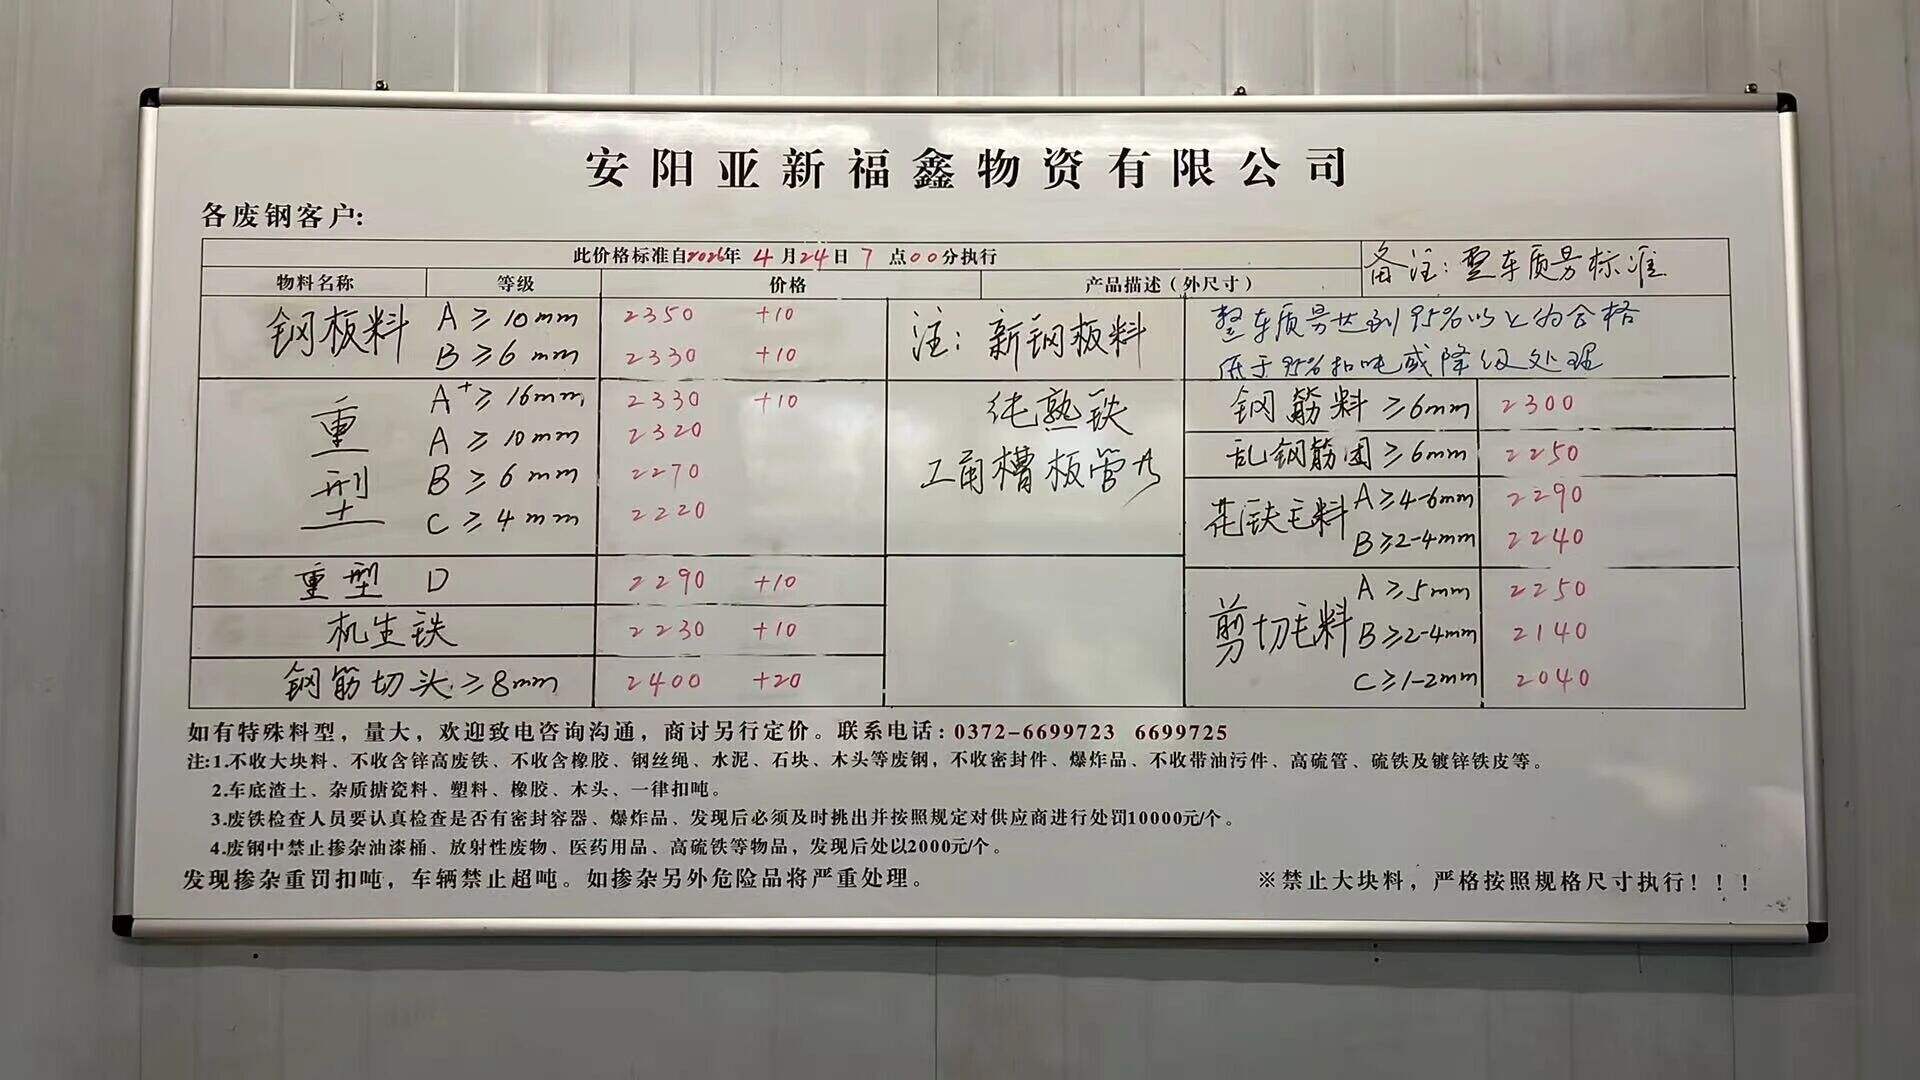 安阳亚新福鑫物资有限公司
各废钢客户:
此价格标准自2026年 4月24日 7点00分执行
备注: 整车质另标准
物料名称 等级 价格 产品描述（外尺寸）
钢板料 A ≥10mm 2350 +10
B ≥6mm 2330 +10
注: 新钢板料
整车质另达到95%以上为合格
低于95%扣吨或降级处理
重型 A+ ≥16mm 2330 +10
A ≥10mm 2320
B ≥6mm 2270
C ≥4mm 2220
纯熟铁
工角槽板管
重型 D 2290 +10
机生铁 2230 +10
钢筋切头 ≥8mm 2400 +20
钢筋料 ≥6mm 2300
乱钢筋团 ≥6mm 2250
花铁毛料 A ≥4-6mm 2290
B ≥2-4mm 2240
剪切毛料 A ≥5mm 2250
B ≥2-4mm 2140
C ≥1-2mm 2040
如有特殊料型，量大，欢迎致电咨询沟通，商讨另行定价。联系电话: 0372-6699723 6699725
注:1.不收大块料、不收含锌高废铁、不收含橡胶、钢丝绳、水泥、石块、木头等废钢，不收密封件、爆炸品、不收带油污件、高硫管、硫铁及镀锌铁皮等。
2.车底渣土、杂质搪瓷料、塑料、橡胶、木头、一律扣吨。
3.废铁检查人员要认真检查是否有密封容器、爆炸品、发现后必须及时挑出并按照规定对供应商进行处罚10000元/个。
4.废钢中禁止掺杂油漆桶、放射性废物、医药用品、高硫铁等物品，发现后处以2000元/个。
发现掺杂重罚扣吨，车辆禁止超吨。如掺杂另外危险品将严重处理。
※禁止大块料，严格按照规格尺寸执行！！！